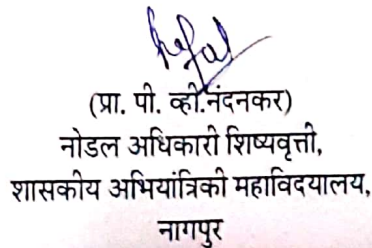 (प्रा. पी. व्ही.नंदनकर)
नोडल अधिकारी शिष्यवृत्ती,
शासकीय अभियांत्रिकी महाविदयालय,
नागपुर